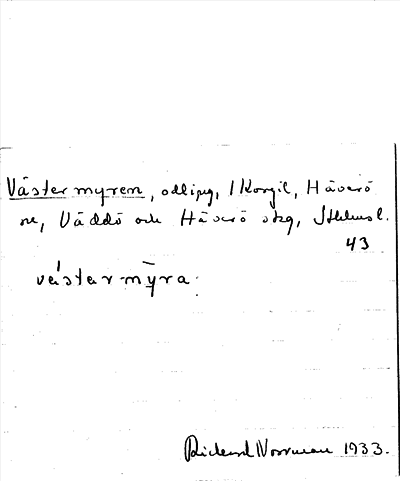 Västermyren, odling, I Korgil, Häverö
ne, Väddö och Häverö skg, Sthlmsl.
43
västar-mȳra.
Rickard Norrman 1933.